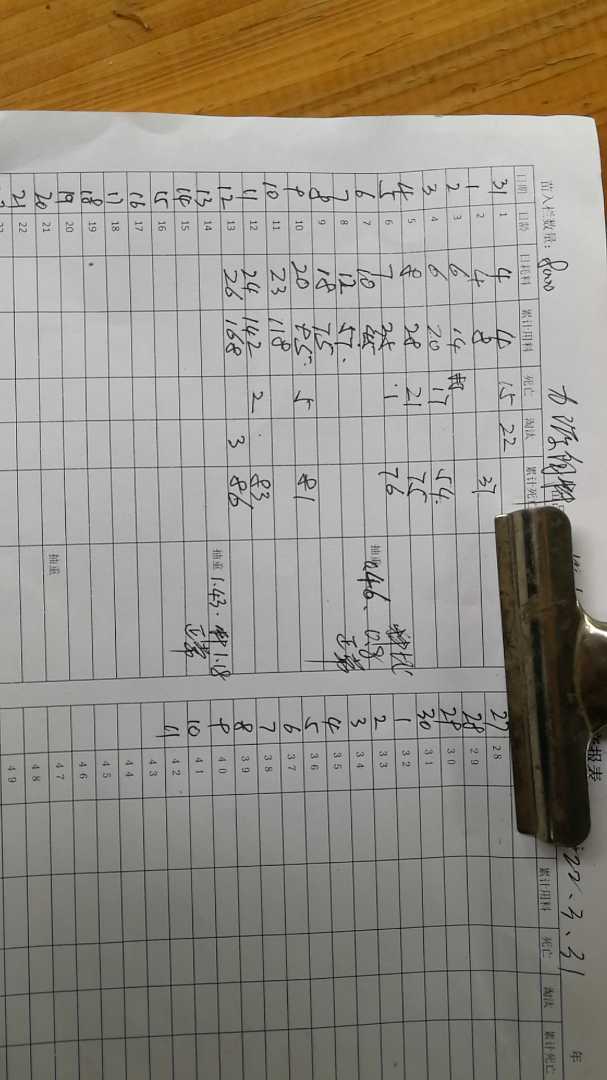 报表 22、3、31 年
苗入栏数量:
日期 日龄 日耗料 累计用料 死亡 淘汰 累计死亡
31 1 4 4 15 22
1 2 4 8 37
2 3 6 14
3 4 6 20 17 54
4 5 8 28 21 75
5 6 7 1 76
6 7 10
7 8 12 57
8 9 18 75
9 10 20 5 81
10 11 23 118
11 12 24 142 2 83
12 13 26 168 3 86
13 14
14 15
15 16
16 17
17 18
18 19
19 20
20 21
21 22
抽重 0.46、0.8
正常
抽重 1.43. 1.18
正常
抽重
累计用料 死亡 淘汰 累计死亡
27 28
28 29
29 30
30 31
1 32
2 33
3 34
4 35
5 36
6 37
7 38
8 39
9 40
10 41
11 42
43
44
45
46
47
48
49